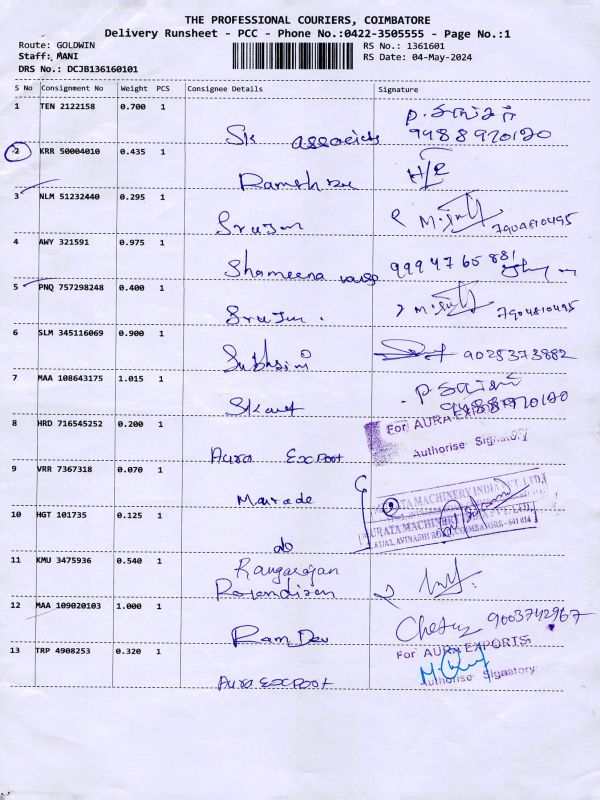 THE PROFESSIONAL COURIERS, COIMBATORE
Delivery Runsheet - PCC - Phone No.:0422-3505555 - Page No.:1
Route: GOLDWIN
Staff: MANI
DRS No.: DCJB136160101
RS No.: 1361601
RS Date: 04-May-2024
S No Consignment No Weight PCS Consignee Details Signature
1 TEN 2122158 0.700 1
Sk associats
9488970120
2 KRR 50004010 0.435 1
Ramesh
H/R
3 NLM 51232440 0.295 1
Srujun
7904810495
4 AWY 321591 0.975 1
Shameena
9994765881
5 PNQ 757298248 0.400 1
Srujun .
7904810495
6 SLM 345116069 0.900 1
9025373882
7 MAA 108643175 1.015 1
9488970120
8 HRD 716545252 0.200 1
Aura Export
For AURA EXPORTS
Authorise Signatory
9 VRR 7367318 0.070 1
10 HGT 101735 0.125 1
do
MACHINERY INDIA PVT. LTD.
AVINASHI ROAD, COIMBATORE - 641 014
11 KMU 3475936 0.540 1
Rangarajan
12 MAA 109020103 1.000 1
Ram Dev
9003742967
13 TRP 4908253 0.320 1
Aura Export
For AURA EXPORTS:
Authorise Signatory